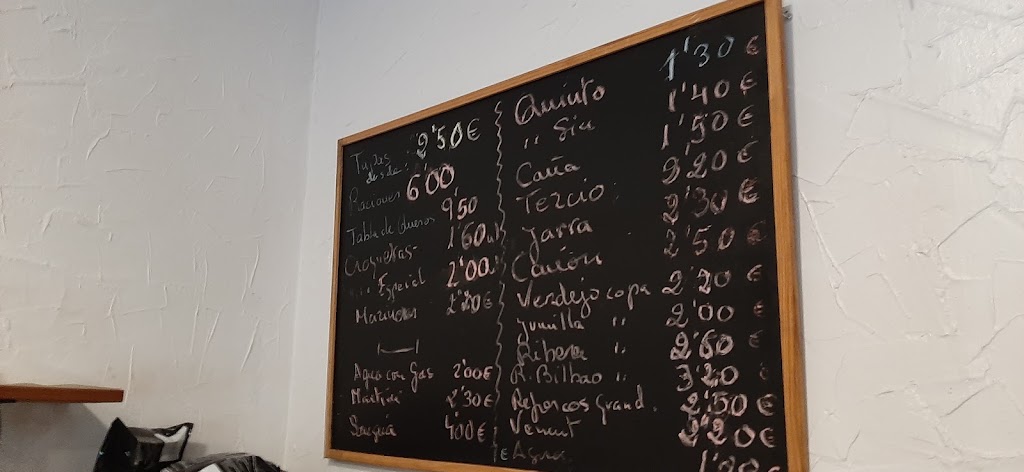 Tapas desde 2'50€
Raciones 6'00
Tabla de Quesos 9'50
Croquetas 1'60 u
,, Especial 2'00
2'20€
Agua con Gas 2'00€
2'30€
4'00€
Quinto 1'30€
,, Sin 1'40€
Caña 1'50€
Tercio 2'20€
Jarra 2'30€
Cañón 2'50€
Verdejo copa 2'20€
Jumilla ,, 2'00€
Ribera ,, 2'60€
R. Bilbao ,, 3'20
Refrescos Grand. 2'50€
Vermut 2'20€
Agua